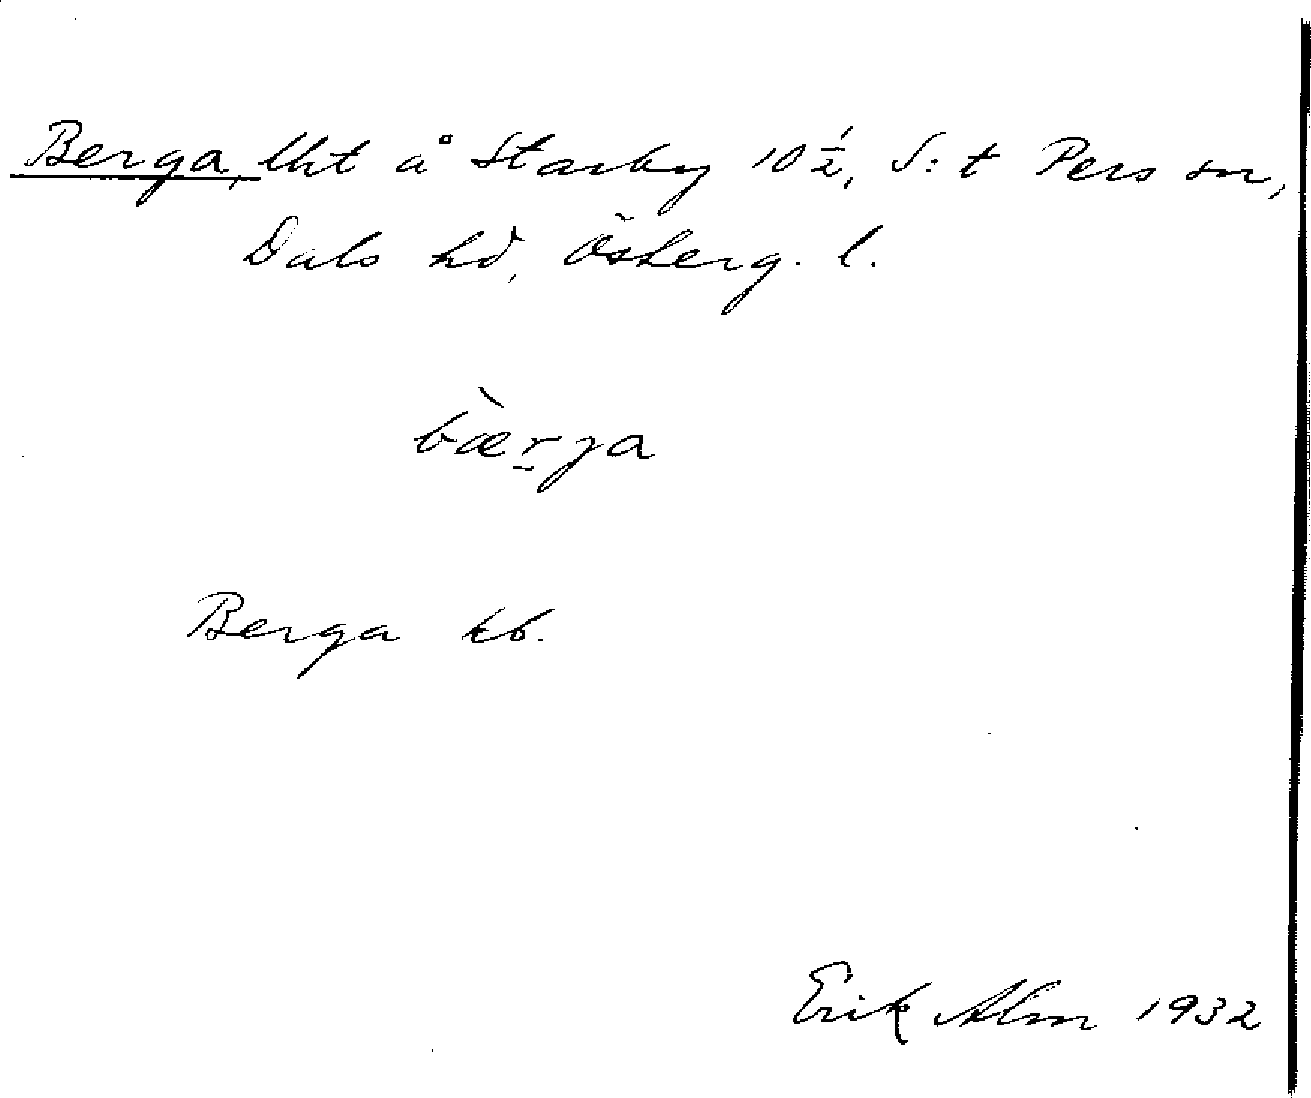 Berga, lht å Starby 10 ½, S:t Pers sn,
Dals hd, Österg. l.
bæ̀r̠ja
Berga kb.
Erik Alm 1932